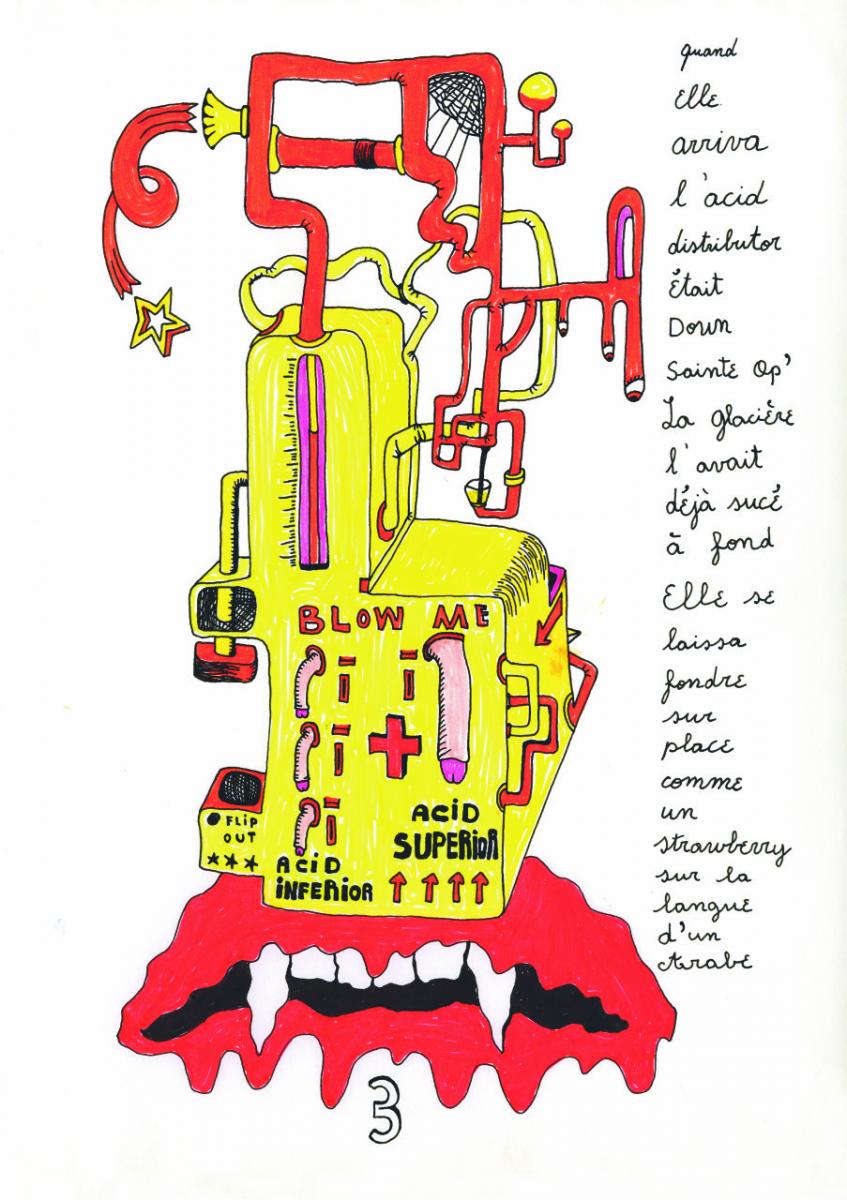 quand
Elle
arriva
l'acid
distributor
Était
Down
Sainte Op'
La glacière
l'avait
déjà sucé
à fond
Elle se
laissa
fondre
sur
place
comme
un
strawberry
sur la
langue
d'un
Arabe
BLOW ME
FLIP
OUT
ACID
INFERIOR
ACID
SUPERIOR
3